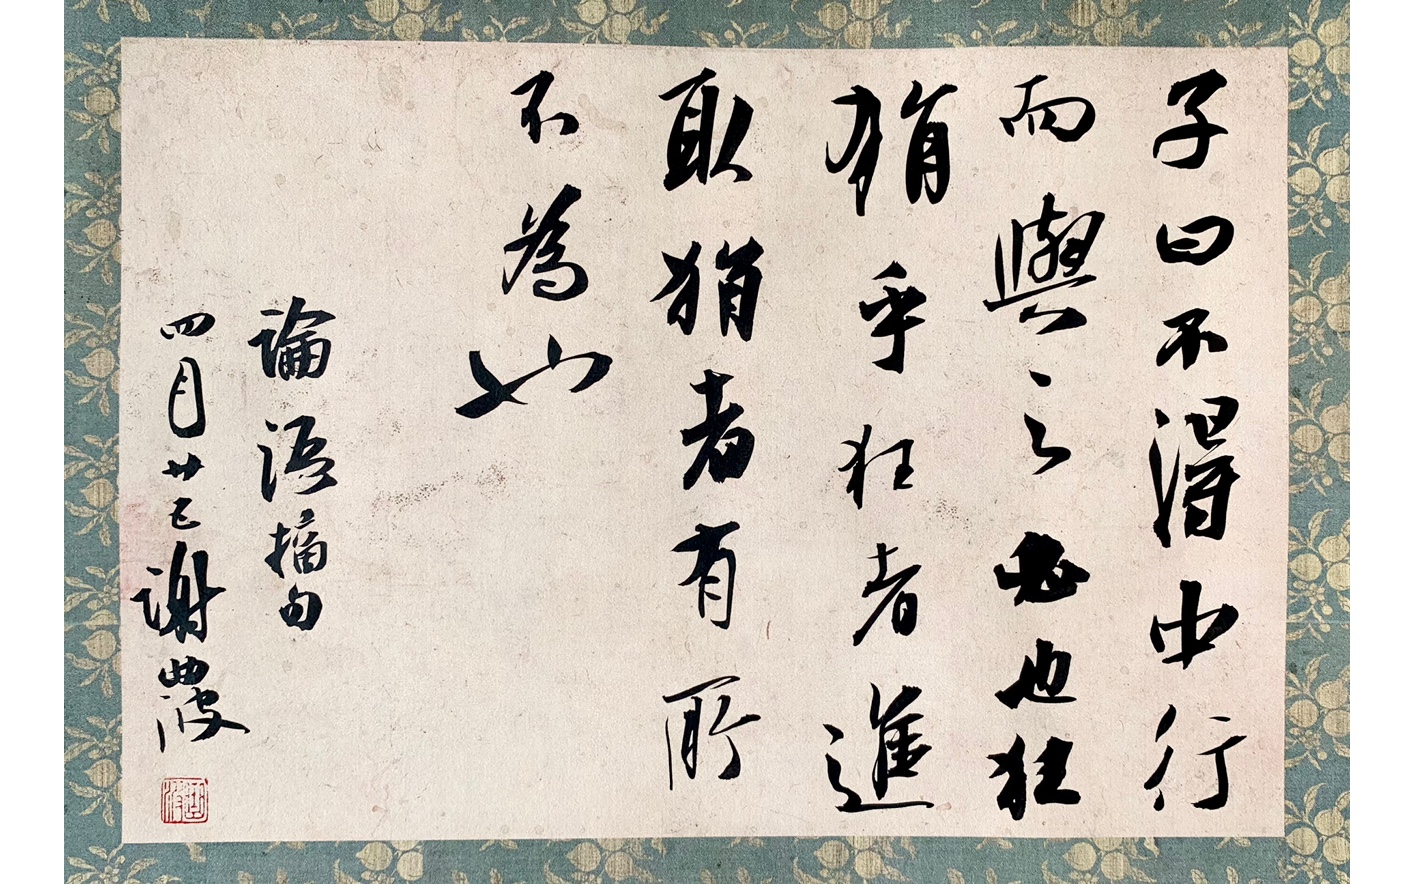 子曰不得中行
而與之必也狂
狷乎狂者進
取狷者有所
不為也
論語摘句
四月廿五謝